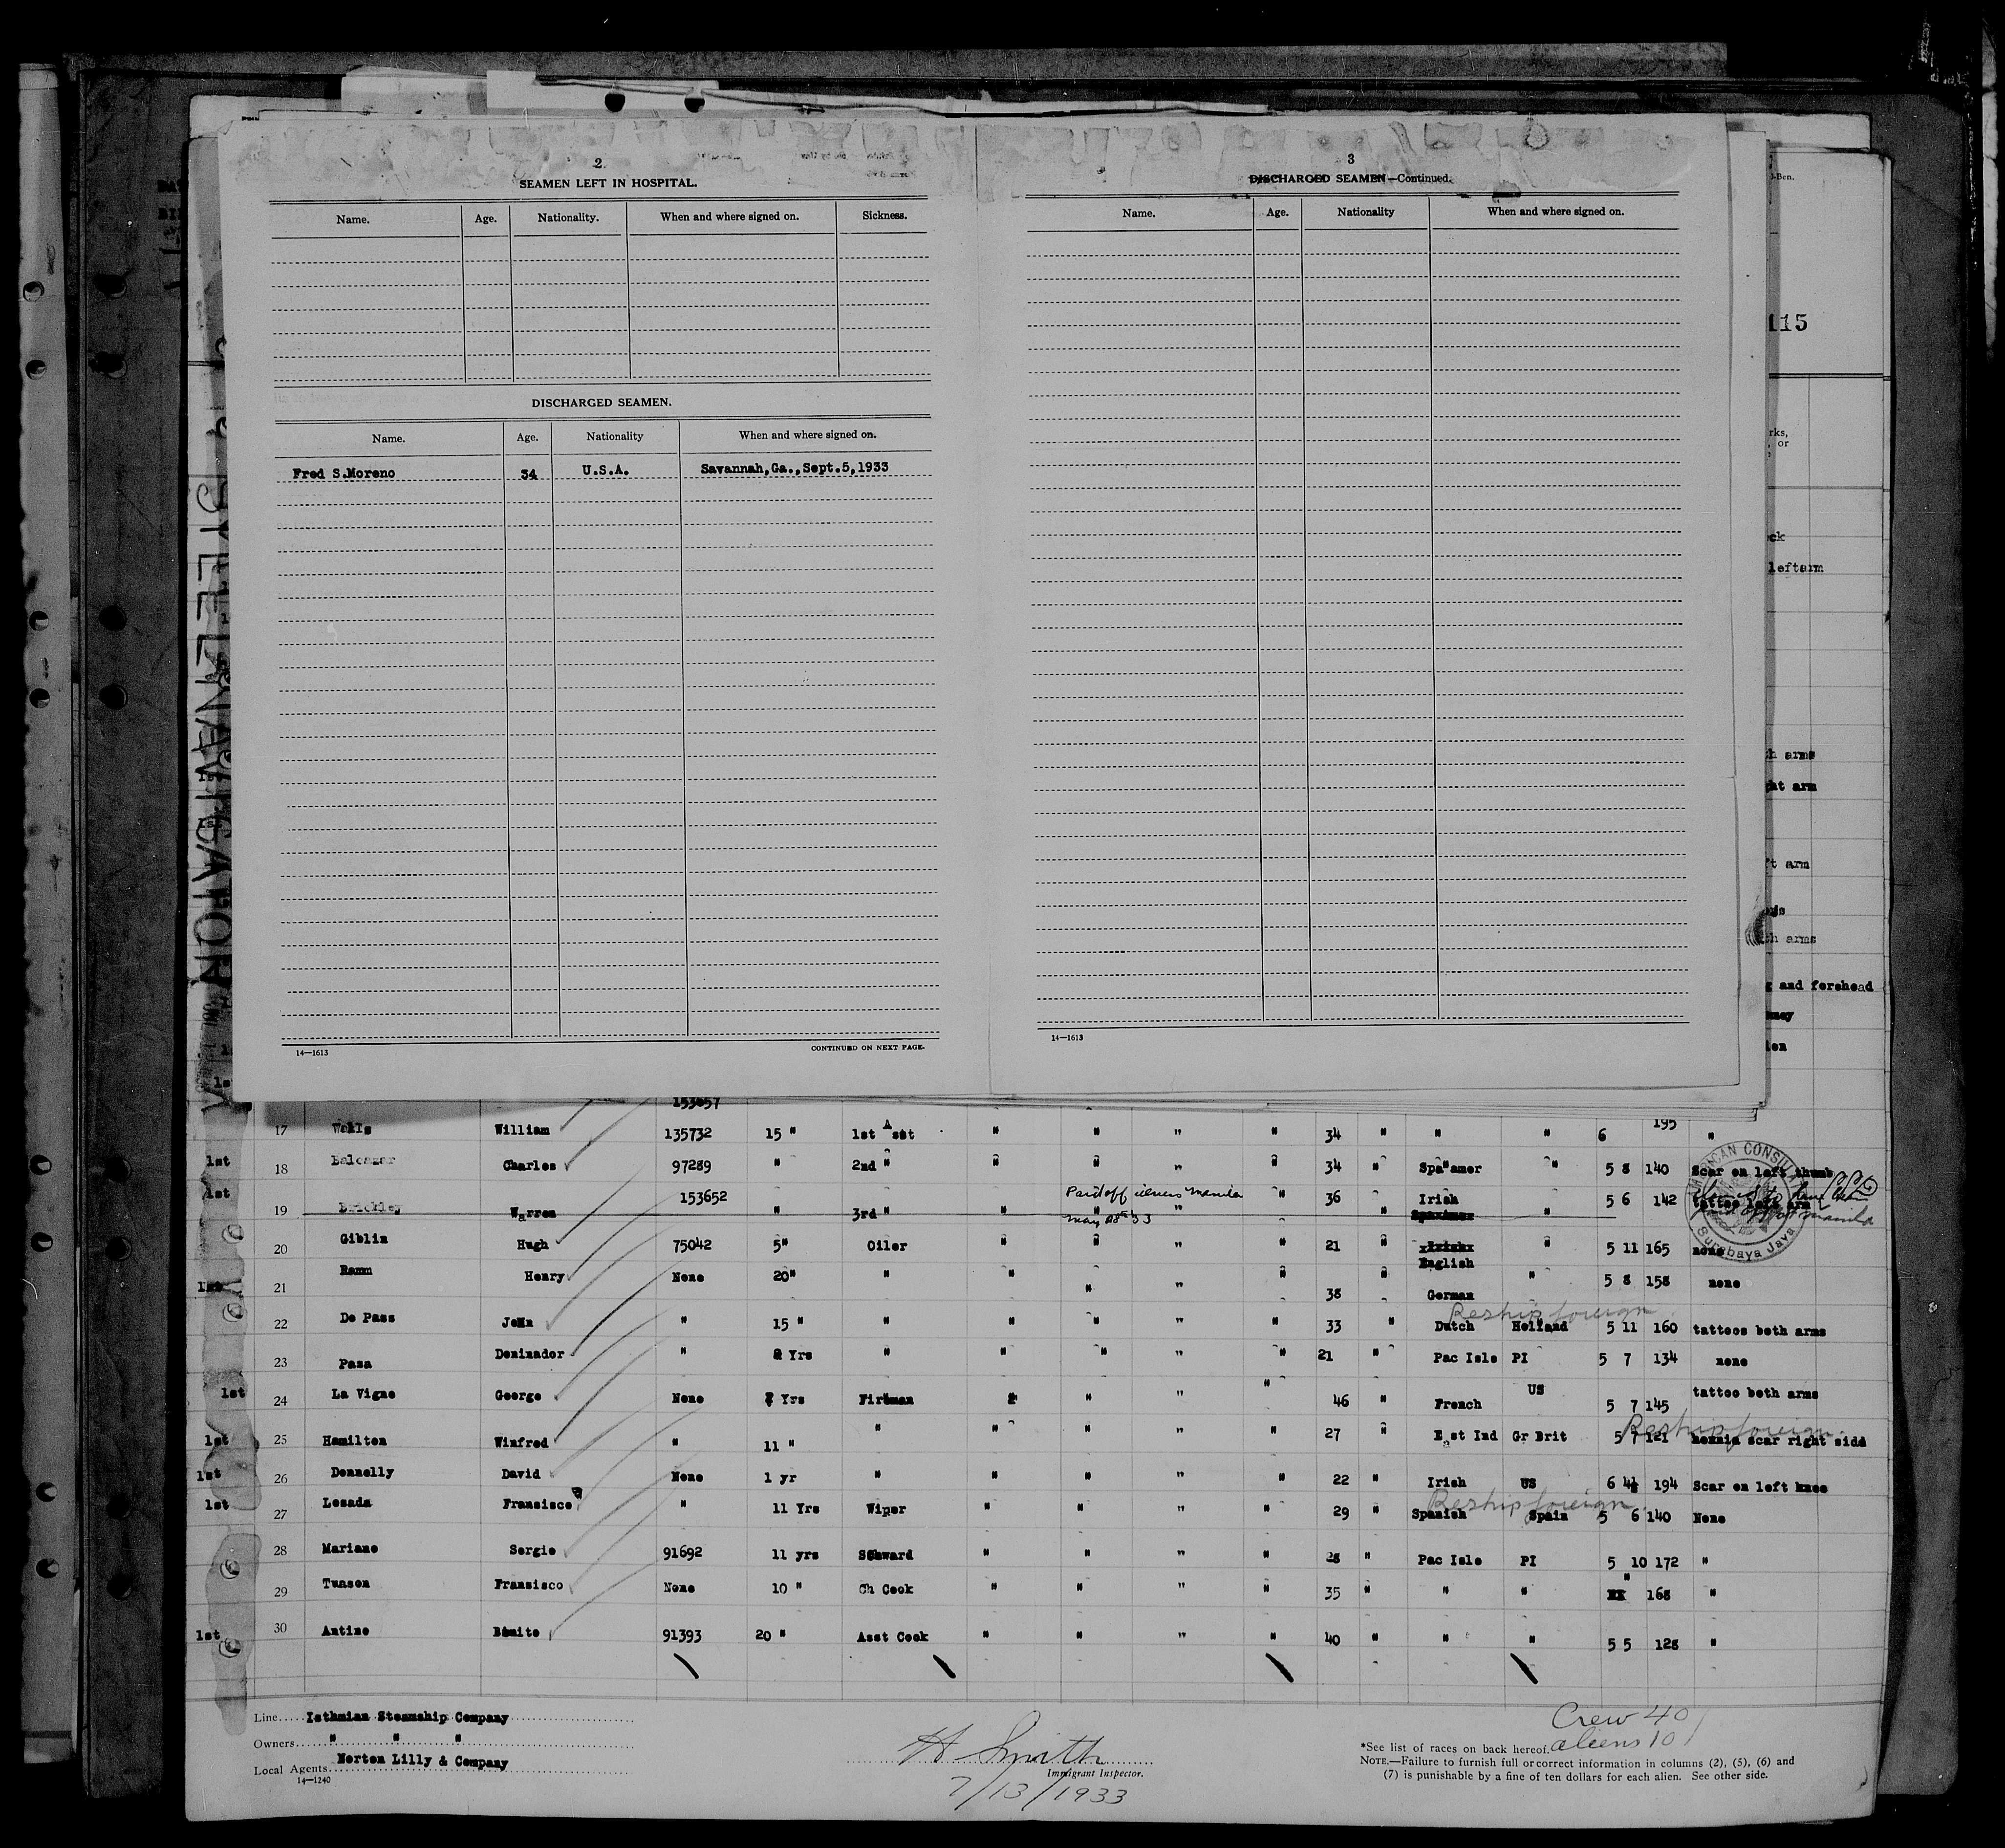 2
SEAMEN LEFT IN HOSPITAL.
Name. Age. Nationality. When and where signed on. Sickness.
DISCHARGED SEAMEN.
Name. Age. Nationality When and where signed on.
Fred S.Moreno 34 U.S.A. Savannah,Ga.,Sept.5,1933
14—1613 CONTINUED ON NEXT PAGE.
3
DISCHARGED SEAMEN—Continued.
Name. Age. Nationality When and where signed on.
14—1613
115
rks,
or
ck
leftarm
th arms
ght arm
ft arm
th arms
g and forehead
153657
17 Walls William 135732 15 " 1st Asst " " " " 34 " " " 6 195 "
1st 18 Balcazar Charles 97289 " 2nd " " " " " 34 " Spa amer " 5 8 140 Scar on left thumb
1st 19 Brickley Warren 153652 " 3rd " " " " " 36 " Irish " 5 6 142 tattoo left arm
Paid off Manila
May 28th 33
AMERICAN CONSULATE
Surabaya Java
20 Giblin Hugh 75042 5" Oiler " " " " 21 " English " 5 11 165 none
1st 21 Ramm Henry None 20" " " " " " 38 " German " 5 8 158 none
Reship foreign
22 De Pass John " 15 " " " " " " 33 " Dutch Holland 5 11 160 tattoos both arms
23 Pasa Dominador " 2 Yrs " " " " " 21 " Pac Isle PI 5 7 134 none
1st 24 La Vigne George None 7 Yrs Fireman " " " " 46 " French US 5 7 145 tattoo both arms
Reship foreign
1st 25 Hamilton Winfred " 11 " " " " " " 27 " East Ind Gr Brit 5 7 121 hernia scar right side
1st 26 Donnelly David None 1 yr " " " " " 22 " Irish US 6 4½ 194 Scar on left knee
Reship foreign
1st 27 Losada Fransisco " 11 Yrs Wiper " " " " 29 " Spanish Spain 5 6 140 None
28 Mariano Sergio 91692 11 yrs Steward " " " " 28 " Pac Isle PI 5 10 172 "
29 Tunson Fransisco None 10 " Ch Cook " " " " 35 " " " " 168 "
1st 30 Antino Benito 91393 20 " Asst Cook " " " " 40 " " " 5 5 128 "
Line Isthmian Steamship Company
Owners " " "
Local Agents Norton Lilly & Company
14—1240
H Smith
Immigrant Inspector.
7/13/1933
Crew 40
aliens 10
*See list of races on back hereof.
NOTE.—Failure to furnish full or correct information in columns (2), (5), (6) and
(7) is punishable by a fine of ten dollars for each alien. See other side.